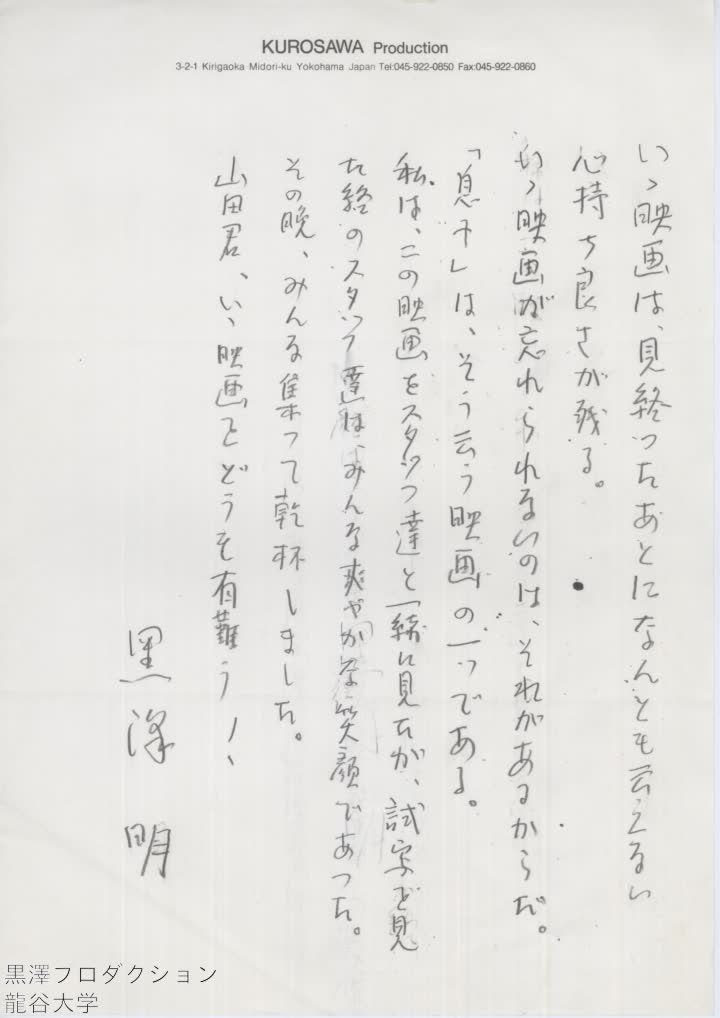 KUROSAWA Production
3-2-1 Kirigaoka Midori-ku Yokohama Japan Tel:045-922-0850 Fax:045-922-0860
いゝ映画は、見終ったあとになんとも云えない
心持ち良さが残る。
いゝ映画が忘れられないのは、それがあるからだ。
「息子」は、そう云う映画の一つである。
私は、この映画をスタッフ達と一緒に見たが、試写を見
た終のスタッフ達は、みんな爽やかな笑顔であった。
その晩、みんな集って乾杯しました。
山田君、いゝ映画をどうも有難う!
黒澤 明
黒澤フロダクション
龍谷大学